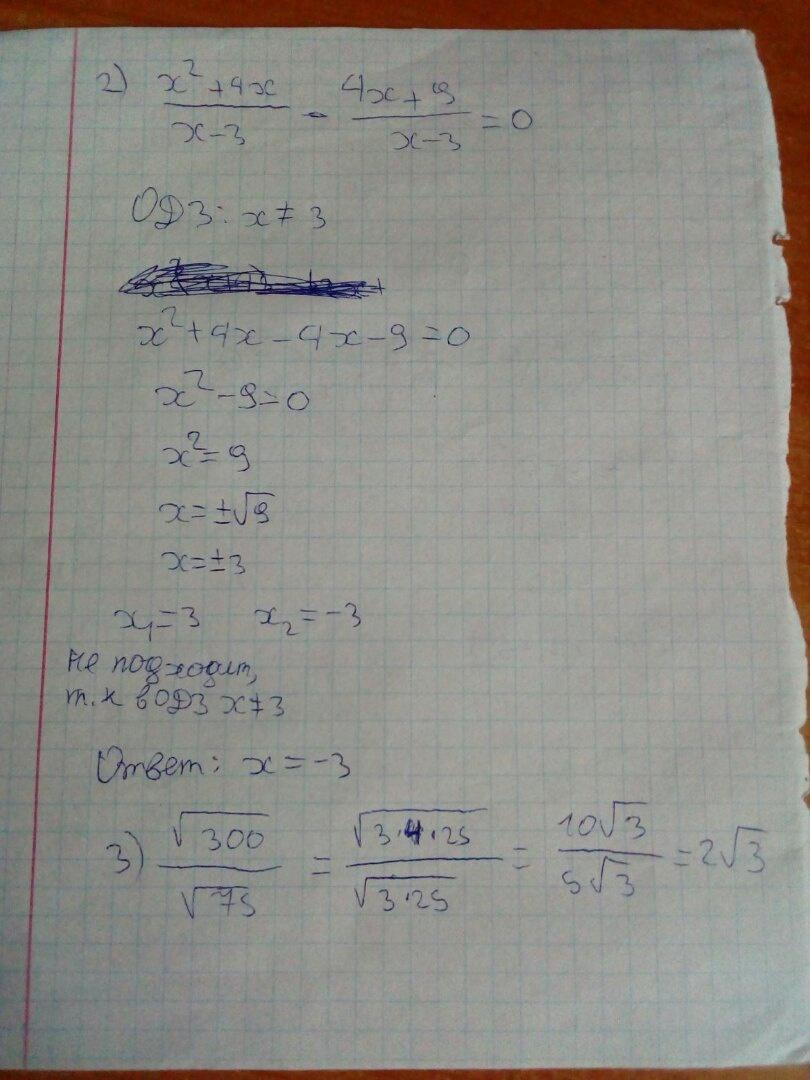 2) (x²+4x)/(x-3) - (4x+9)/(x-3) = 0
ОДЗ: x≠3
x²+4x-4x-9=0
x²-9=0
x²=9
x=±√9
x=±3
x₁=3 x₂=-3
не подходит,
т.к в ОДЗ x≠3
Ответ: x=-3
3) √300/√75 = √(3·4·25)/√(3·25) = 10√3/5√3 = 2√3